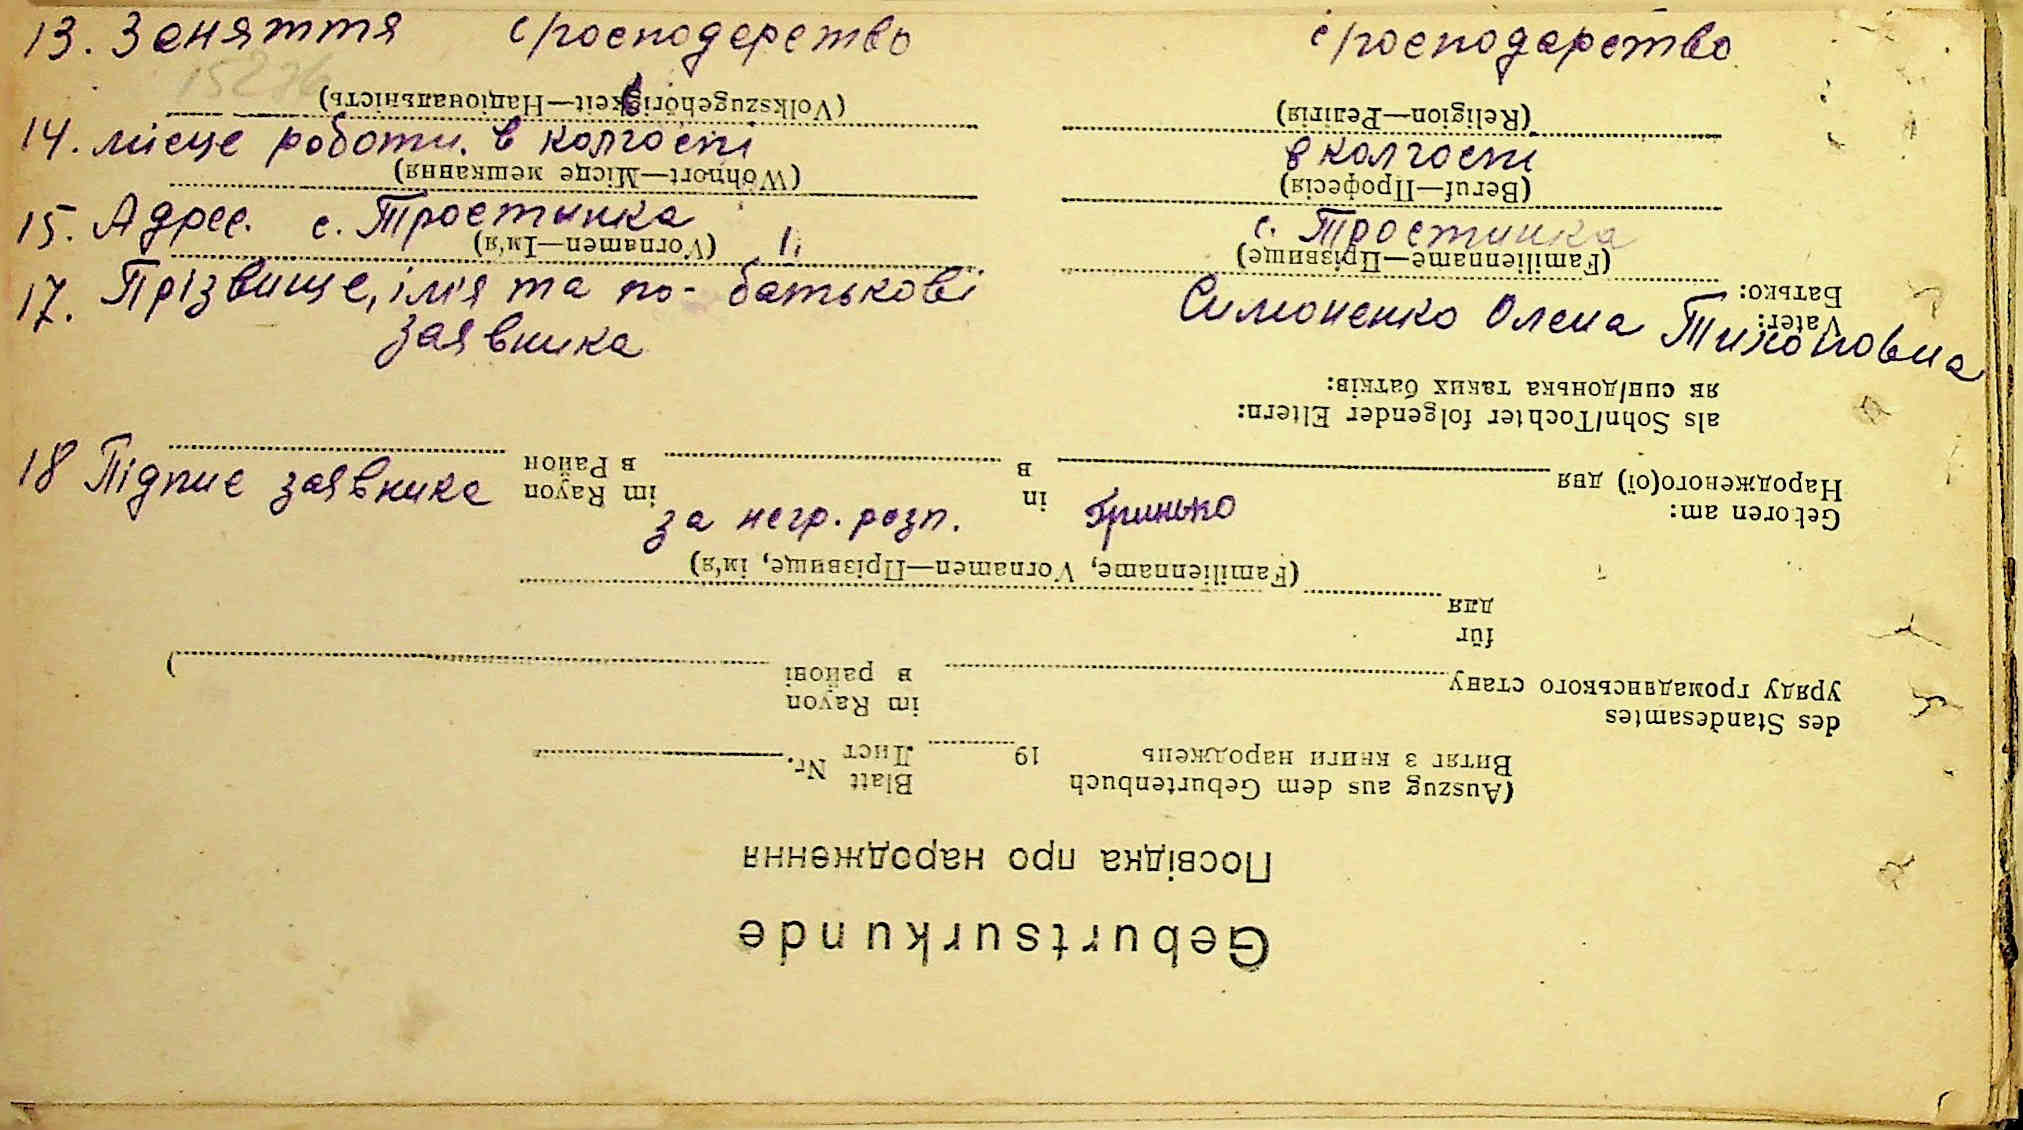 13. Заняття с/госполдерство с/господарство
15276
14. місце роботи. в колгоспі в колгоспі
15. Адрес. с. Тростинка с. Тростинка
17. Прізвище, ім'я та по-батькові Симоненко Олена Тихоновна
заявника
18 Підпис заявника за негр. розп. Гринько
Geburtsurkunde
Посвідка про народження
(Auszug aus dem Geburtenbuch 19 Blatt Nr.
Витяг з книги народжень Лист
des Standesamtes im Rayon
уряду громадянського стану в районі )
für
для
(Familienname, Vornamen—Прізвище, ім'я)
Geboren am: in im Rayon
Народженого(ої) дня в в Район
als Sohn/Tochter folgender Eltern:
як син/донька таких батків:
Vater:
Батько:
(Familienname—Прізвище) (Vornamen—Ім'я)
(Beruf—Професія) (Wohnort—Місце мешкання)
(Religion—Релігія) (Volkszugehörigkeit—Національність)